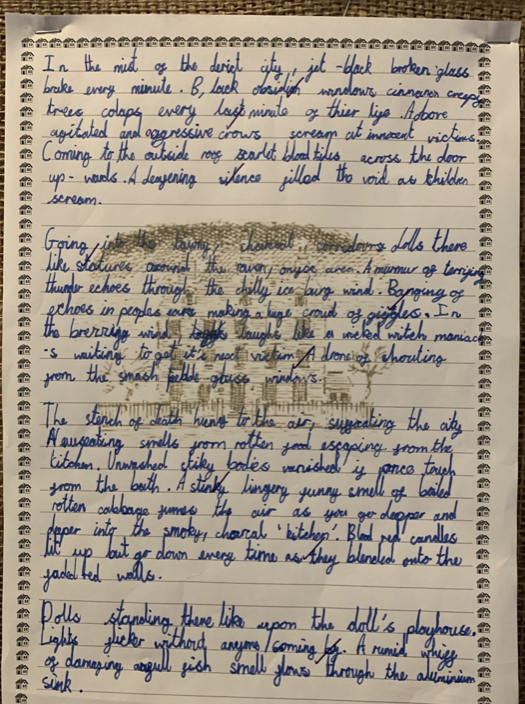 In the mist of the derict city, jet-black broken glass
brake every minute. B, lack obsidian windows cinnamon creepy
trees colaps every last minute of thier life. Above
agitated and aggressive crows scream at innocent victims.
Coming to the outside roof scarlet blood tiles across the door
up-wards. A deafening silence filled the void as children
scream.
Going into the tawny, charcoal corridours dolls there
like statures around the raven, onyx area. A murmur of terrying
thunder echoes through the chilly ice burg wind. Banging of
echoes in peoples ears making a huge croud of giggles. In
the brerzing wind laughs like a wicked witch maniach
-s waiting to get it's next victim. A drone of shouting
from the smash glass windows.
The stench of death hung to the air, suffgating the city
A nuseating smells from rotten food escaping from the
kitchen. Unwashed stiky bodies vanished if yonce touch
from the bath. A stinky lingery funny smell of boiled
rotten cabbage fumes the air as you go depper and
deper into the smoky, charcal 'kitchen'. Blod red candles
lit up but go down every time as they blended onto the
faded red walls.
Dolls standing there like upon the doll's playhouse.
Lights flicker without anyone coming by. A whiff
of damaging fish smell flows through the aluminium
sink.